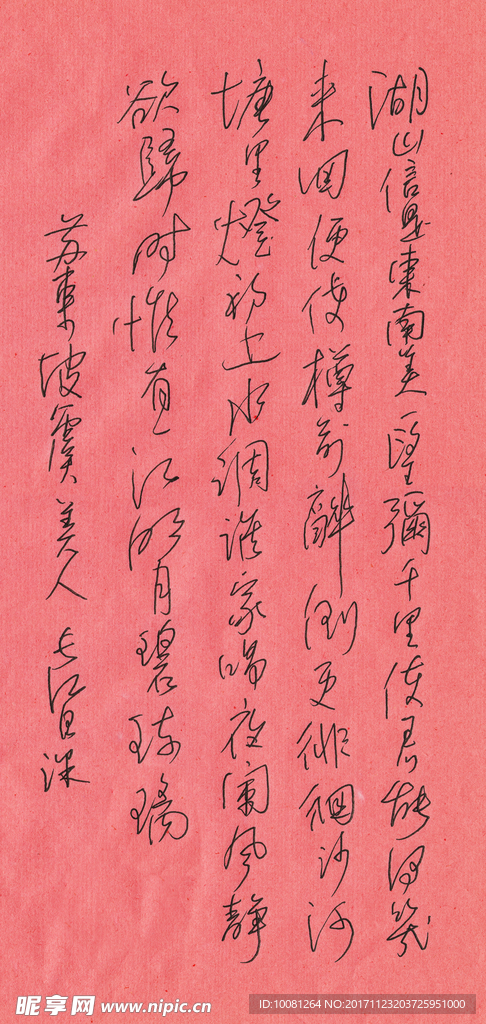 湖山信是東南美一望彌千里使君能得幾
来回便使樽前醉倒更徘徊沙河
塘里燈初上水調誰家唱夜闌風靜
欲歸時惟有一江明月碧琉璃
苏東坡虞美人
昵享网 www.nipic.cn
ID:10081264 NO:20171123203725951000